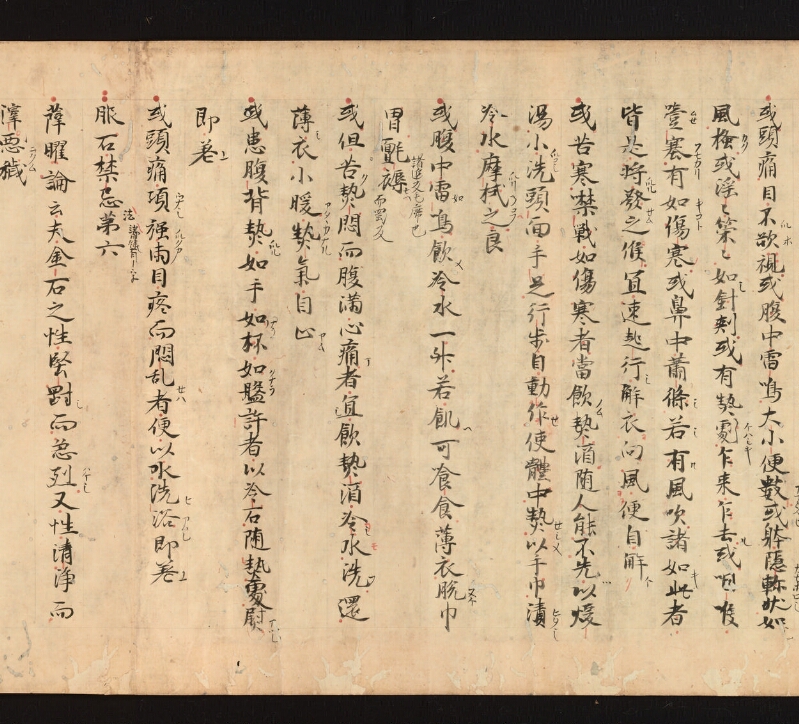 或頭痛目不欲視或腹中雷鳴大小便數或躰隱軫状如
風搔或淫々策々如針刺或有熱處乍来乍去或咽喉
壅塞有如傷寒或鼻中蕭條若有風吹諸如此者
皆是將發之候宜速起行解衣向風便自解
或苦寒噤戰如傷寒者當飲熱酒随人能不先以煖
湯小洗頭面手足行歩自動作使體中熱以手巾漬
冷水摩拭之良
或腹中雷鳴飲冷水一升若飢可飡食薄衣脱巾
冐氈褥
或但苦熱悶而腹滿心痛者宜飲熱酒冷水洗還
薄衣小暖熱氣自止
或患腹背熱如手如杯如盤許者以冷石随熱處熨
即差
或頭痛項強兩目疼而悶乱者便以水洗浴即差
服石禁忌第六
薛曜論云夫金石之性堅對而急烈又性清淨而
滓惡穢